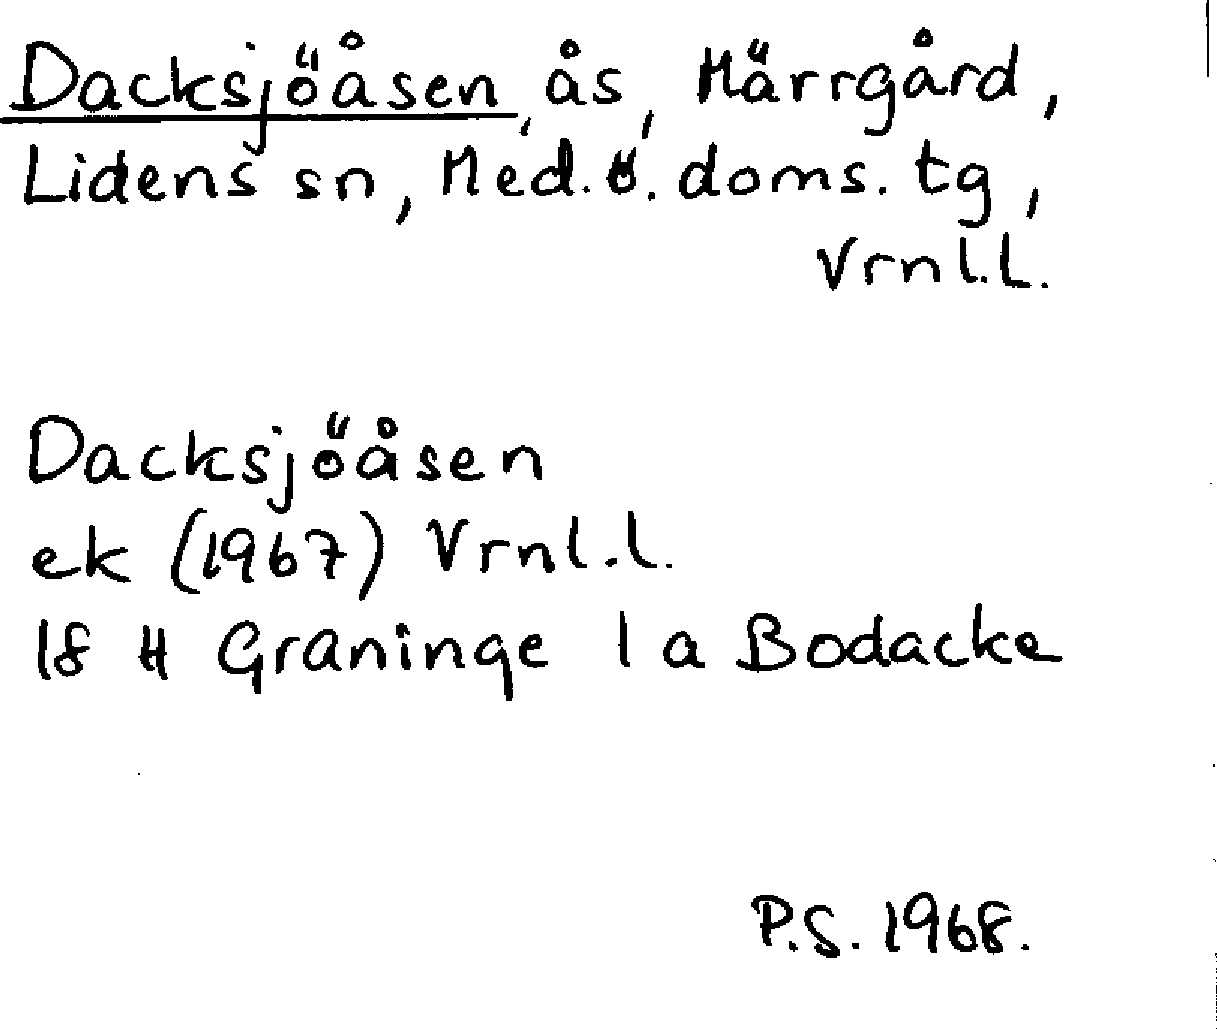 Dacksjöåsen, ås, Märrgård,
Lidens sn, Med. ö. doms. tg,
Vrnl.l.
Dacksjöåsen
ek (1967) Vrnl.l.
18 H Graninge 1 a Bodacke
P.S. 1968.